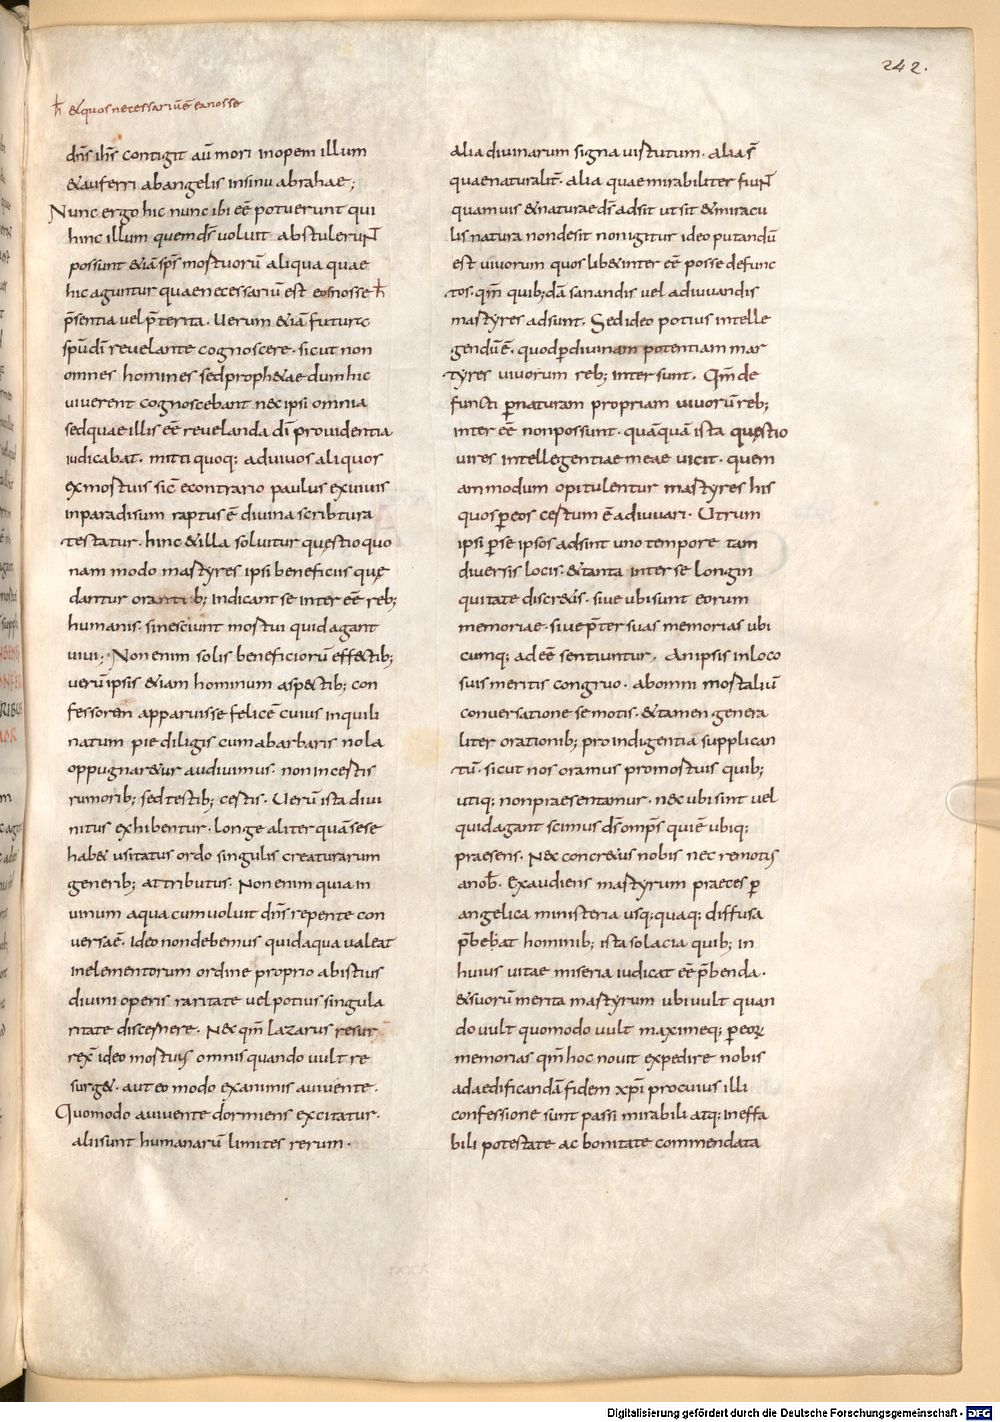 242.
ħ &quos necessariū ē ea nosse
dn̄s ih̄s contigit aū mori inopem illum
& auferri ab angelis in sinu abrahae;
Nunc ergo hic nunc ibi eē potuerunt qui
hinc illum quem ds̄ voluit abstulerunt
possunt &iā sp̄s mortuorū aliqua quae
hic aguntur quae necessariū est eos nosse ħ
p̄sentia vel p̄terita. Uerum &iā futura
sp̄u dī revelante cognoscere. sicut non
omnes homines sed proph&ae dum hic
viverent cognoscebant nec ipsi omnia
sed quae illis eē revelanda dī providentia
iudicabat. mitti quoq; ad vivos aliquos
ex mortuis sic̄ e contrario paulus ex vivis
in paradisum raptus ē divina scribtura
testatur. hinc & illa solvitur questio quo
nam modo martyres ipsi beneficiis quę
dantur orantib; indicant se inter eē reb;
humanis. si nesciunt mortui quid agant
vivi. Non enim solis beneficiorū effectib;
verū ipsis &iam hominum aspectib; con
fessorem apparuisse felicē cuius inquili
natum pie diligis cum a barbaris nola
oppugnar&ur audivimus. non incertis
rumorib; sed testib; certis. Uerū ista divi
nitus exhibentur. longe aliter quā sese
hab& usitatus ordo singulis creaturarum
generib; attributus. Non enim quia in
vinum aqua cum voluit dn̄s repente con
versa ē. Ideo non debemus quid aqua valeat
in elementorum ordine proprio ab istius
divini operis raritate vel potius singula
ritate discernere. Nec qm̄ lazarus resur
rex̄ ideo mortuus omnis quando vult re
surg&. aut eo modo exanimis a vivente.
Quomodo a vivente dormiens excitatur.
alii sunt humanarū limites rerum.
alia divinarum signa virtutum. alia s̄
quae naturalit̄. alia quae mirabiliter fiunt
quamvis & naturae ds̄ adsit ut sit & miracu
lis natura non desit non igitur ideo putandū
est vivorum quos lib& inter eē posse defunc
tos. qm̄ quib;dā sanandis vel adiuvandis
martyres adsunt. Sed ideo potius intelle
gendū ē. quod p divinam potentiam mar
tyres vivorum reb; intersunt. Qm̄ de
functi p naturam propriam vivorū reb;
inter eē non possunt. quāquā ista questio
vires intellegentiae meae vicit. quem
ammodum opitulentur martyres his
quos p eos certum ē adiuvari. Utrum
ipsi p se ipsos adsint uno tempore tam
diversis locis. & tanta inter se longin
quitate discr&is. sive ubi sunt eorum
memoriae. sive p̄ter suas memorias ubi
cumq; adeē sentiuntur. An ipsis in loco
suis meritis congruo. ab omni mortaliū
conversatione semotis. & tamen genera
liter orationib; pro indigentia supplican
tū. sicut nos oramus pro mortuis quib;
utiq; non praesentamur. nec ubi sint vel
quid agant scimus ds̄ omp̄s qui ē ubiq;
praesens. Nec concr&us nobis nec remotis
a nob̄. Exaudiens martyrum praeces p
angelica ministeria usq;quaq; diffusa
p̄bebat hominib; ista solacia quib; in
huius vitae miseria iudicat eē p̄benda.
& suorū merita martyrum ubi vult quan
do vult quomodo vult maximeq; p eoꝝ
memorias qm̄ hoc novit expedire nobis
ad aedificandā fidem xp̄i pro cuius illi
confessione sunt passi mirabili atq; ineffa
bili potestate ac bonitate commendata
Digitalisierung gefördert durch die Deutsche Forschungsgemeinschaft - DFG